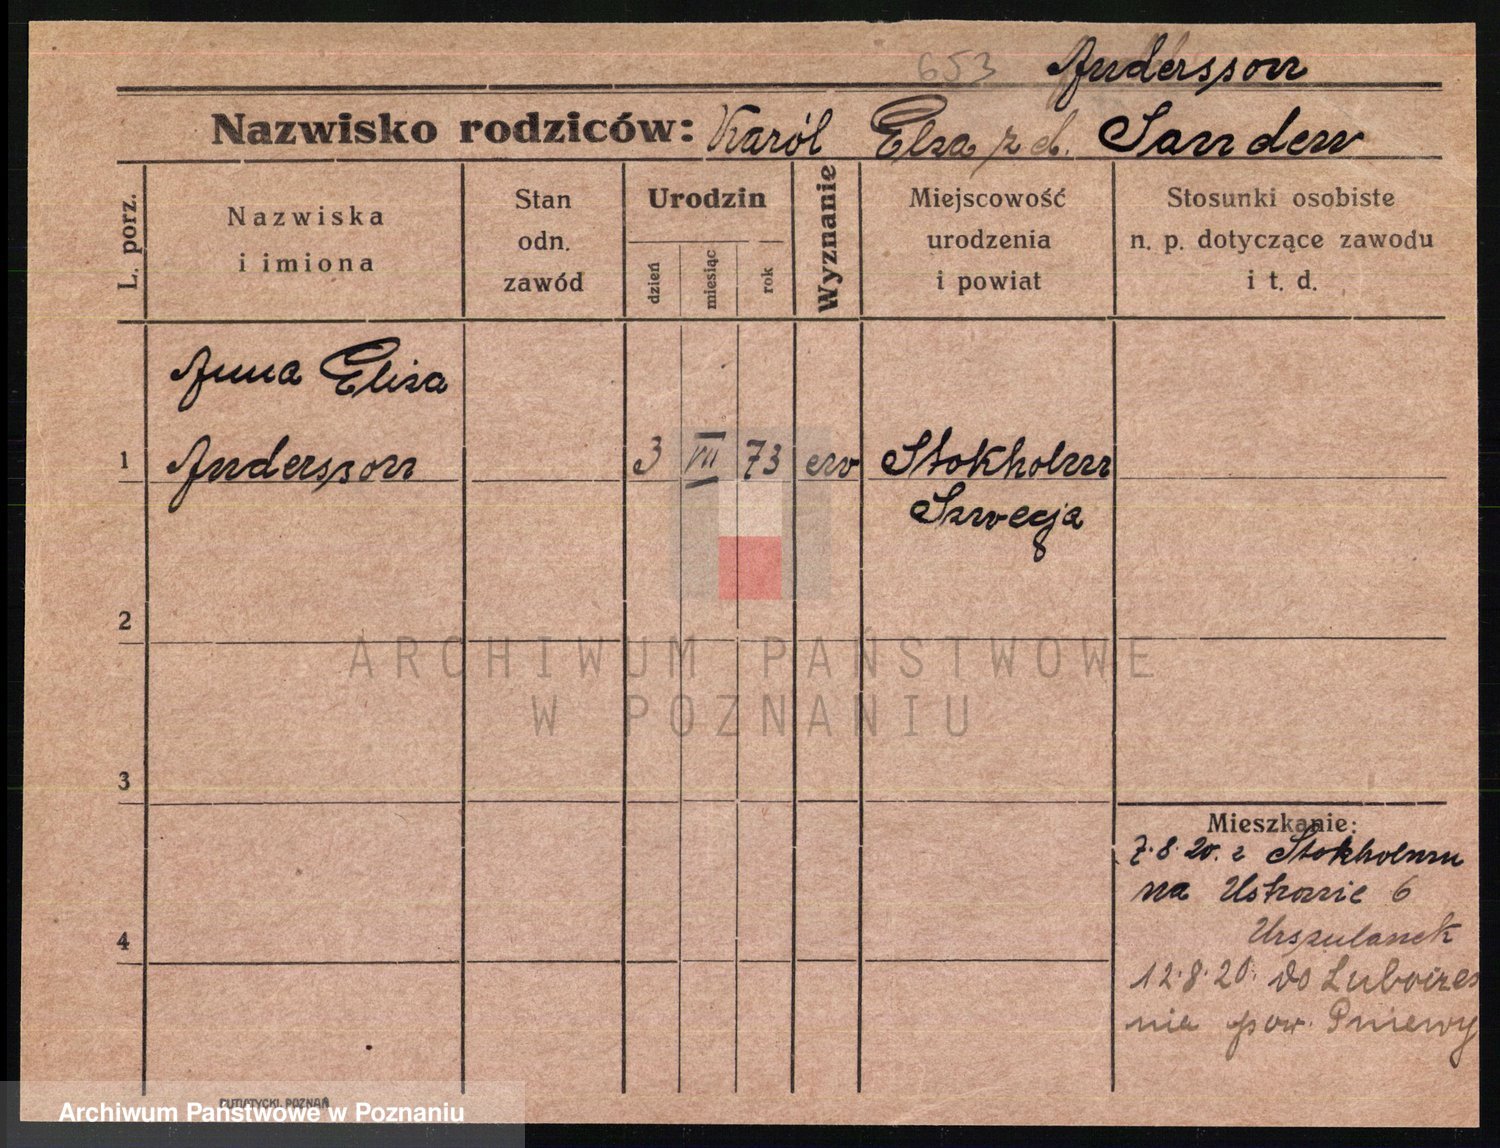 653 Andersson
Nazwisko rodziców: Karól Elza z d. Sander
L. porz.
Nazwiska
i imiona
Stan
odn.
zawód
Urodzin
dzień
miesiąc
rok
Wyznanie
Miejscowość
urodzenia
i powiat
Stosunki osobiste
n. p. dotyczące zawodu
i t. d.
Anna Eliza
1 Andersson 3 VII 73 ew Stokholm
Szwecja
2
ARCHIWUM PAŃSTWOWE
W POZNANIU
3
Mieszkanie:
7.8.20. z Stokholmu
na 6
Urszulanek
4
12.8.20. do
nie pow. Pniewy
Archiwum Państwowe w Poznaniu